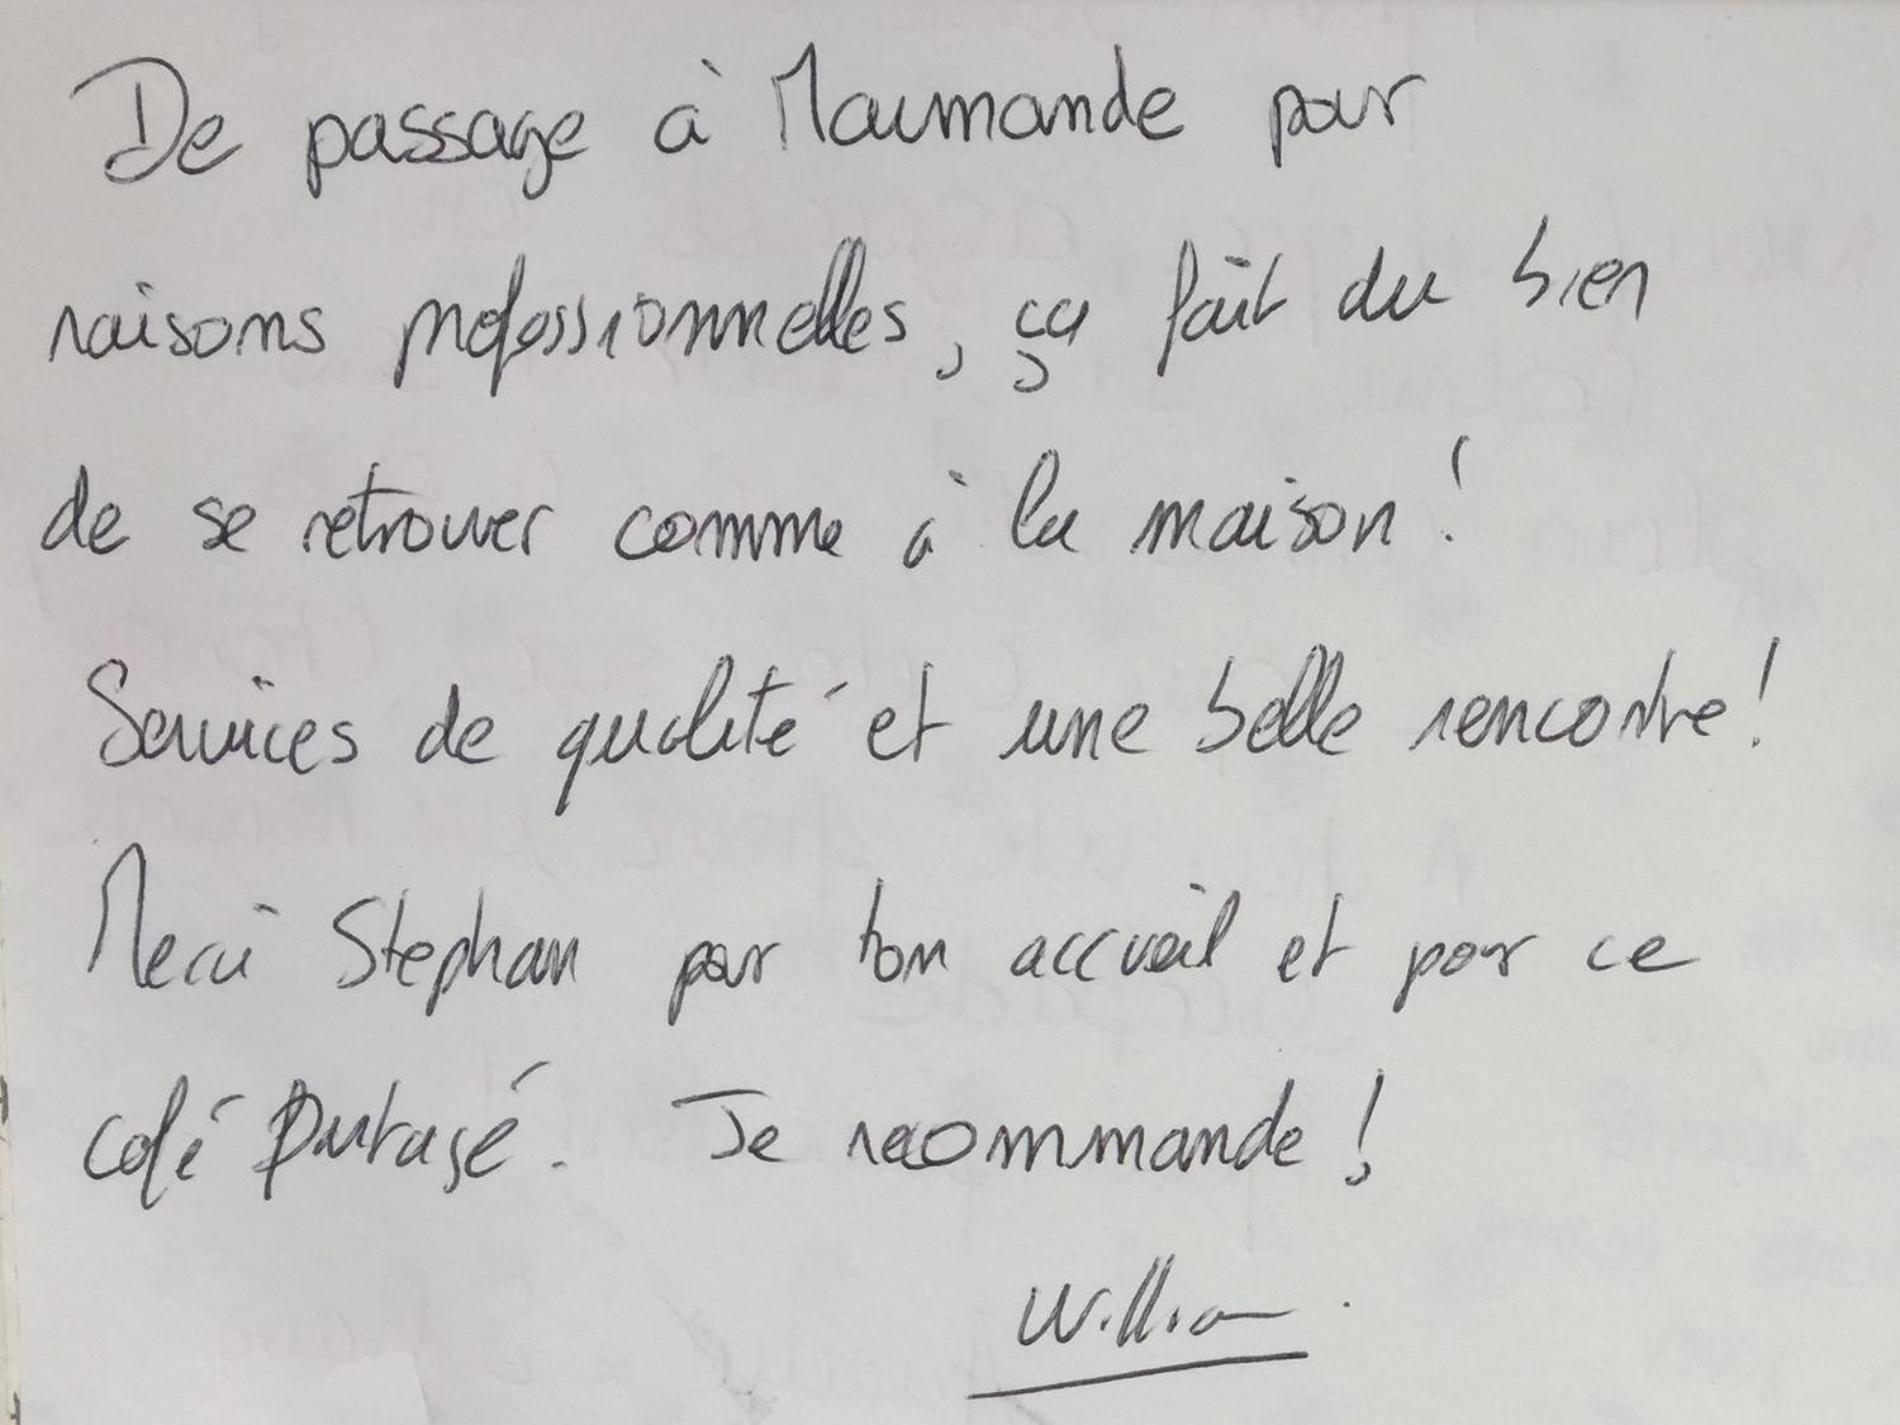 De passage à Marmande pour
raisons professionnelles, ça fait du bien
de se retrouver comme à la maison !
Services de qualité et une belle rencontre !
Merci Stephan pour ton accueil et pour ce
café partagé. Je recommande !
William.